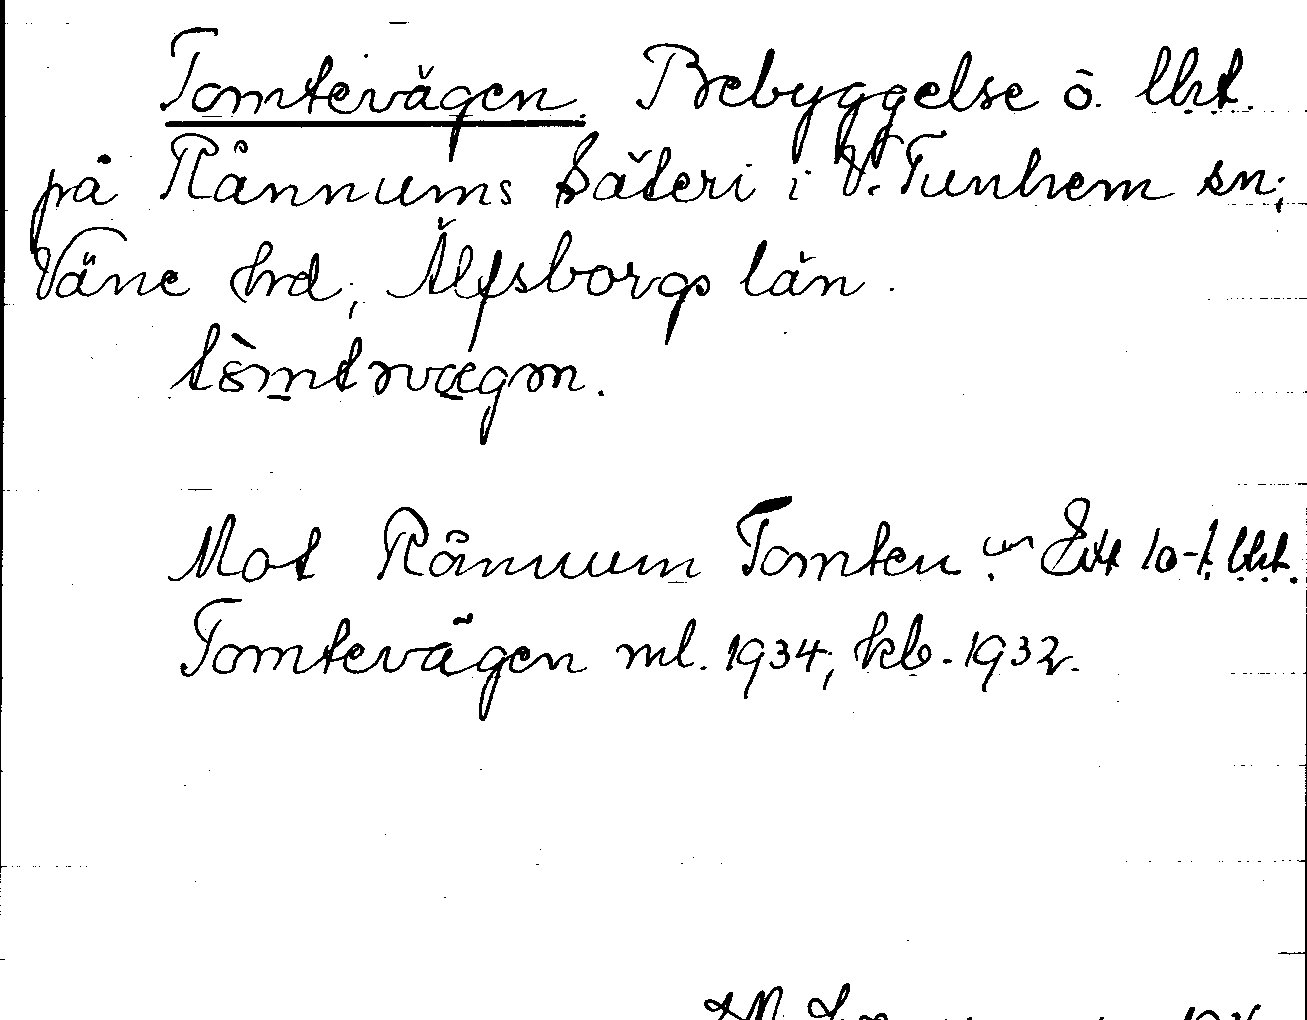 Tomtevägen. Bebyggelse o. lht.
på Rånnums Säteri i V. Tunhem sn;
Väne hd, Älfsborgs län.
tòmtəvægən.
Mot Rånnum Tomten. Ett 10-t. lht.
Tomtevägen ml. 1934, kb. 1932.